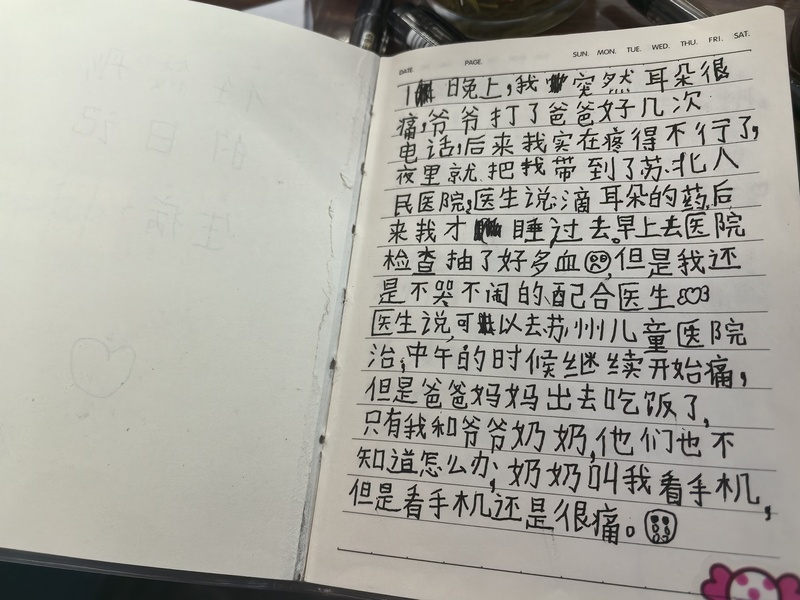 DATE. PAGE. SUN. MON. TUE. WED. THU. FRI. SAT.
晚上,我突然耳朵很
痛,爷爷打了爸爸好几次
电话,后来我实在疼得不行了,
夜里就把我带到了苏北人
民医院,医生说:滴耳朵的药,后
来我才睡过去。早上去医院
检查抽了好多血,但是我还
是不哭不闹的配合医生
医生说,可以去苏州儿童医院
治,中午的时候继续开始痛,
但是爸爸妈妈出去吃饭了,
只有我和爷爷奶奶,他们也不
知道怎么办,奶奶叫我看手机,
但是看手机还是很痛。